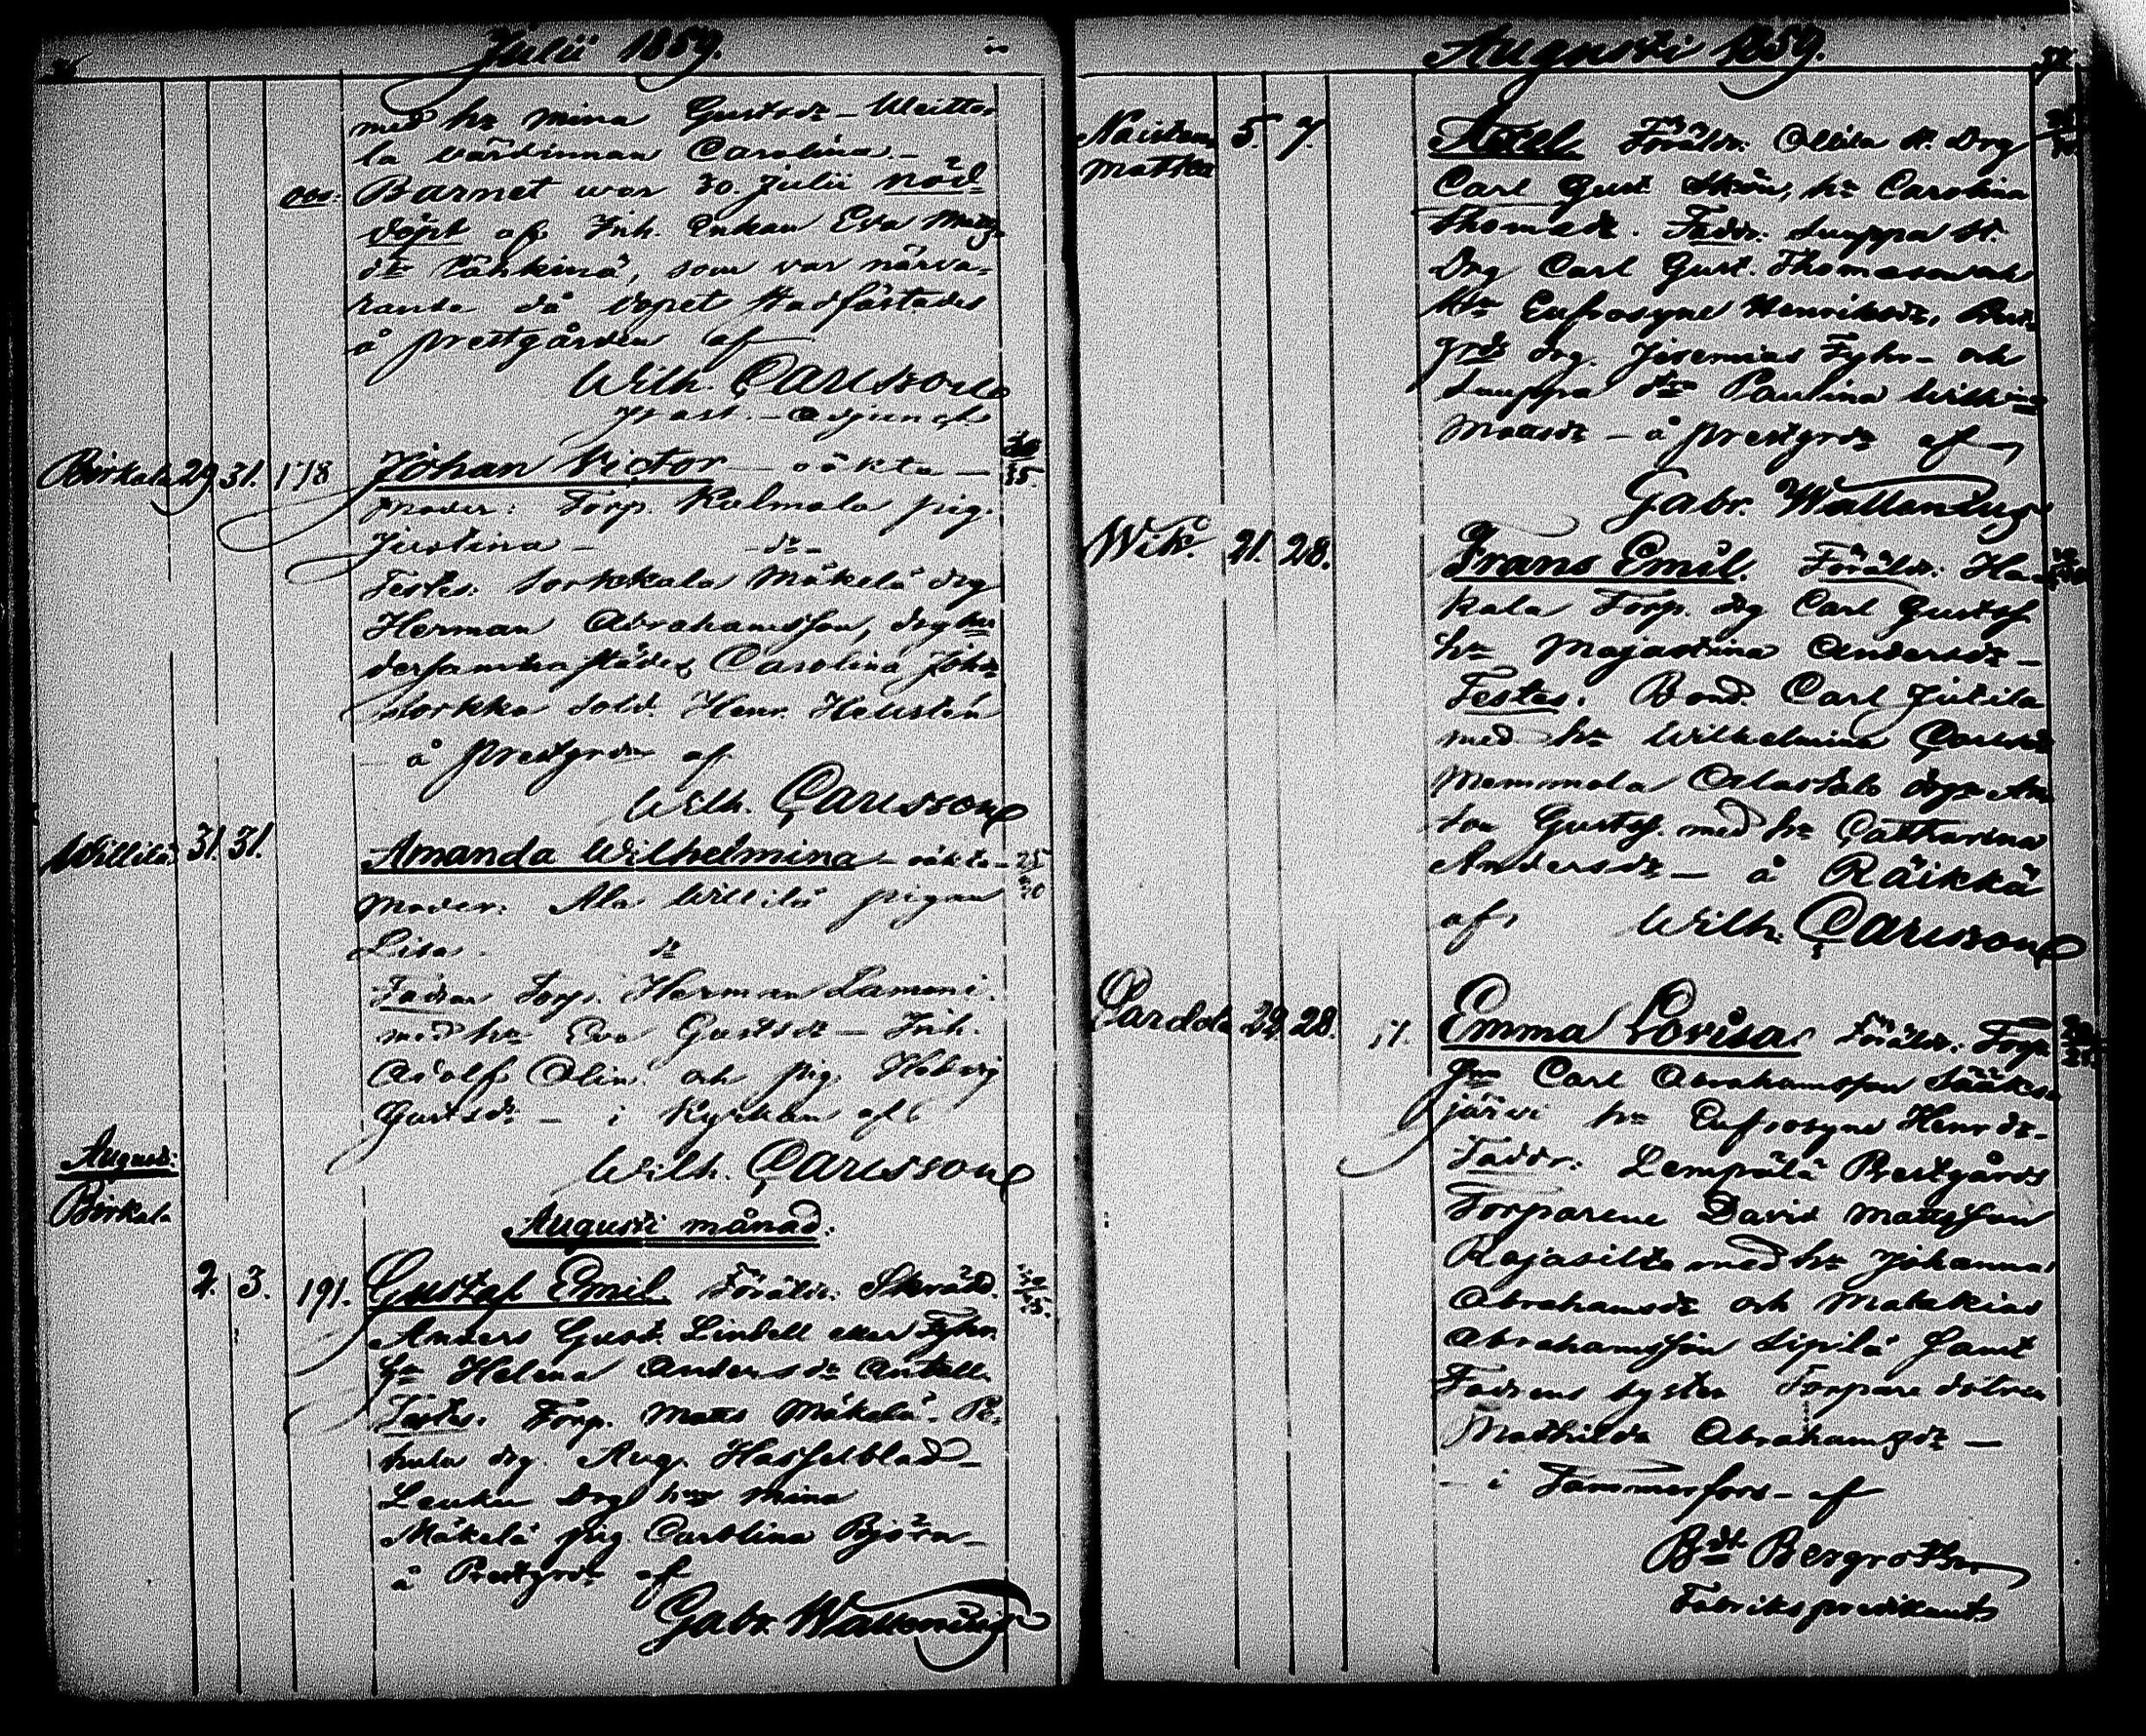 Julii 1859.
med h:u Mina Gustsdr – Meitto
la värdinnan Carolina. –
obs: Barnet war 30. Julii nöd-
döpt af Inh. Enkan Eva Matts
dr Lähkinä, som var närva-
rande då dopet stadfästades
å prestgården af
Wilh. Carlsson
Past. – Adjunct.
Birkala 29 31. 178 Johan Victor – oäkta –
30
35.
Moder: Torp. Kulmala pig.
Justina – dr –
Testes: Sorkkala Mäkelä drg
Herman Abrahamsson, drg hu
dersammastädes Carolina Johdr
Sorkka Sold. Henr. Hellstén
– å prestgrdn af
Wilh. Carlsson
Willilä 31. 31. Amanda Wilhelmina – oäkta –
25
30
Moder: Ala Willilä pigan
Lisa. dr
Faddr. Torp. Herman Lammi.
med h:u Eva Gustsdr – Inh.
Adolf Olin och pig. Hedvig
Gustsdr – i Kyrkan af
Wilh. Carlsson
August:
Birkala
Augusti månad.
2. 3. 191. Gustaf Emil. Föräldr: Skrädd.
30
35.
Anders Gust. Lindell eller Fyhr
h:u Helena Andersdr Antell
Testes. Torp. Matts Mäkelä. Pe-
hula drg. Aug. Hasselblad –
Leuku drg h:u Mina
Mäkelä pig. Carolina Björn –
å Prestgrdn af
Gabr. Wallenius
Augusti 1859.
Naistenmatka 5. 7. Axel. Föräldr: Ollila st. drg
Carl Gust. Skön, h:u Carolina
Thomasdr. Faddr: Suuppa st.
drg Carl Gust. Thomasson
h:u Eufrosyne Henriksdr,
grds drg. Jeremias Fyhr – och
Suuppa dtr Paulina Wilhna
Mattsdr – å Prestgrdn af
Gabr. Wallenius
Wik. 21. 28. Frans Emil. Föräldr: Haa-
kala Torp. drg Carl Gustaf
h:u Majastina Andersdr –
Testes. Bond. Carl Jutila
med h:u Wilhelmina Carlsdr
Memmola Alastalo drgn An-
ton Gustaf. med h:u Catharina
Andersdr – å Räikkä
af Wilh. Carlsson
Pardala 22. 28. Emma Lovisa. Föräldr: Torp
Carl Abrahamsson Sääks-
järvi h:u Eufrosyne Henrdr –
Faddr: Lempälä Prestgårds
Torparene David Mattsson
Rajasilta med h:u Johanna
Abrahamsdr och Malakias
Abrahamsson Sipilä samt
Fadrens syster Torpare dottren
Mathilda Abrahamsdr –
– i Tammerfors – af
Bdt Bergroth
Fabriks predikant